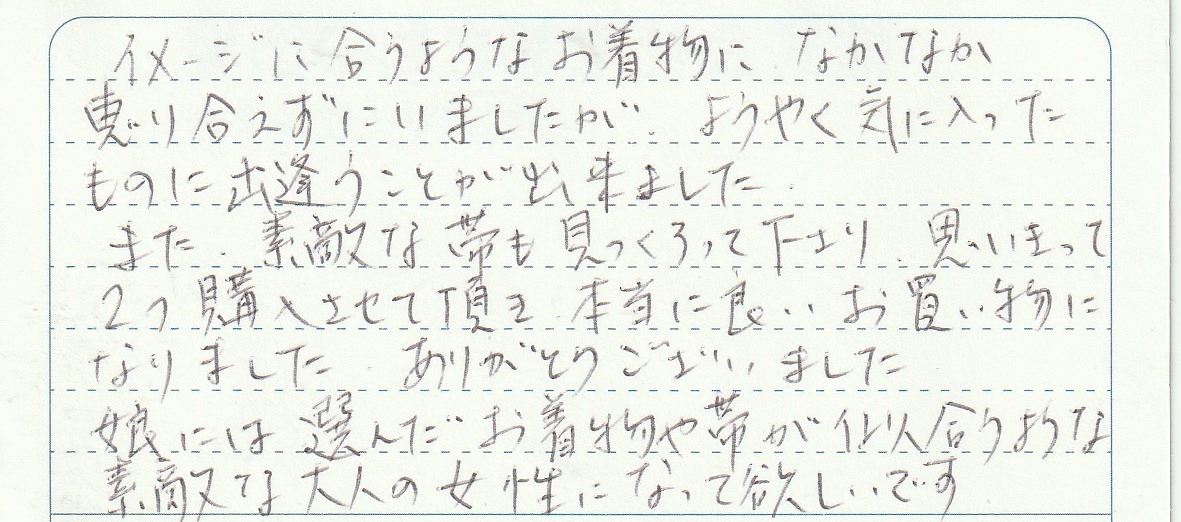 イメージに合うようなお着物に なかなか
恵り合えずにいましたが、ようやく気に入った
ものに出逢うことが出来ました.
また、素敵な帯も見つくろって下さり、思いきって
2つ購入させて頂き 本当に良いお買い物に
なりました ありがとうございました
娘には選んだお着物や帯が似合うような
素敵な大人の女性になって欲しいです